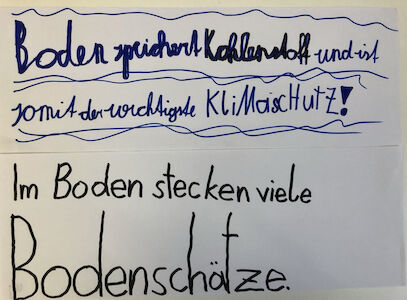 Boden speichert Kohlenstoff und ist
somit der wichtigste KliMascHutz!
Im Boden stecken viele
Bodenschätze.